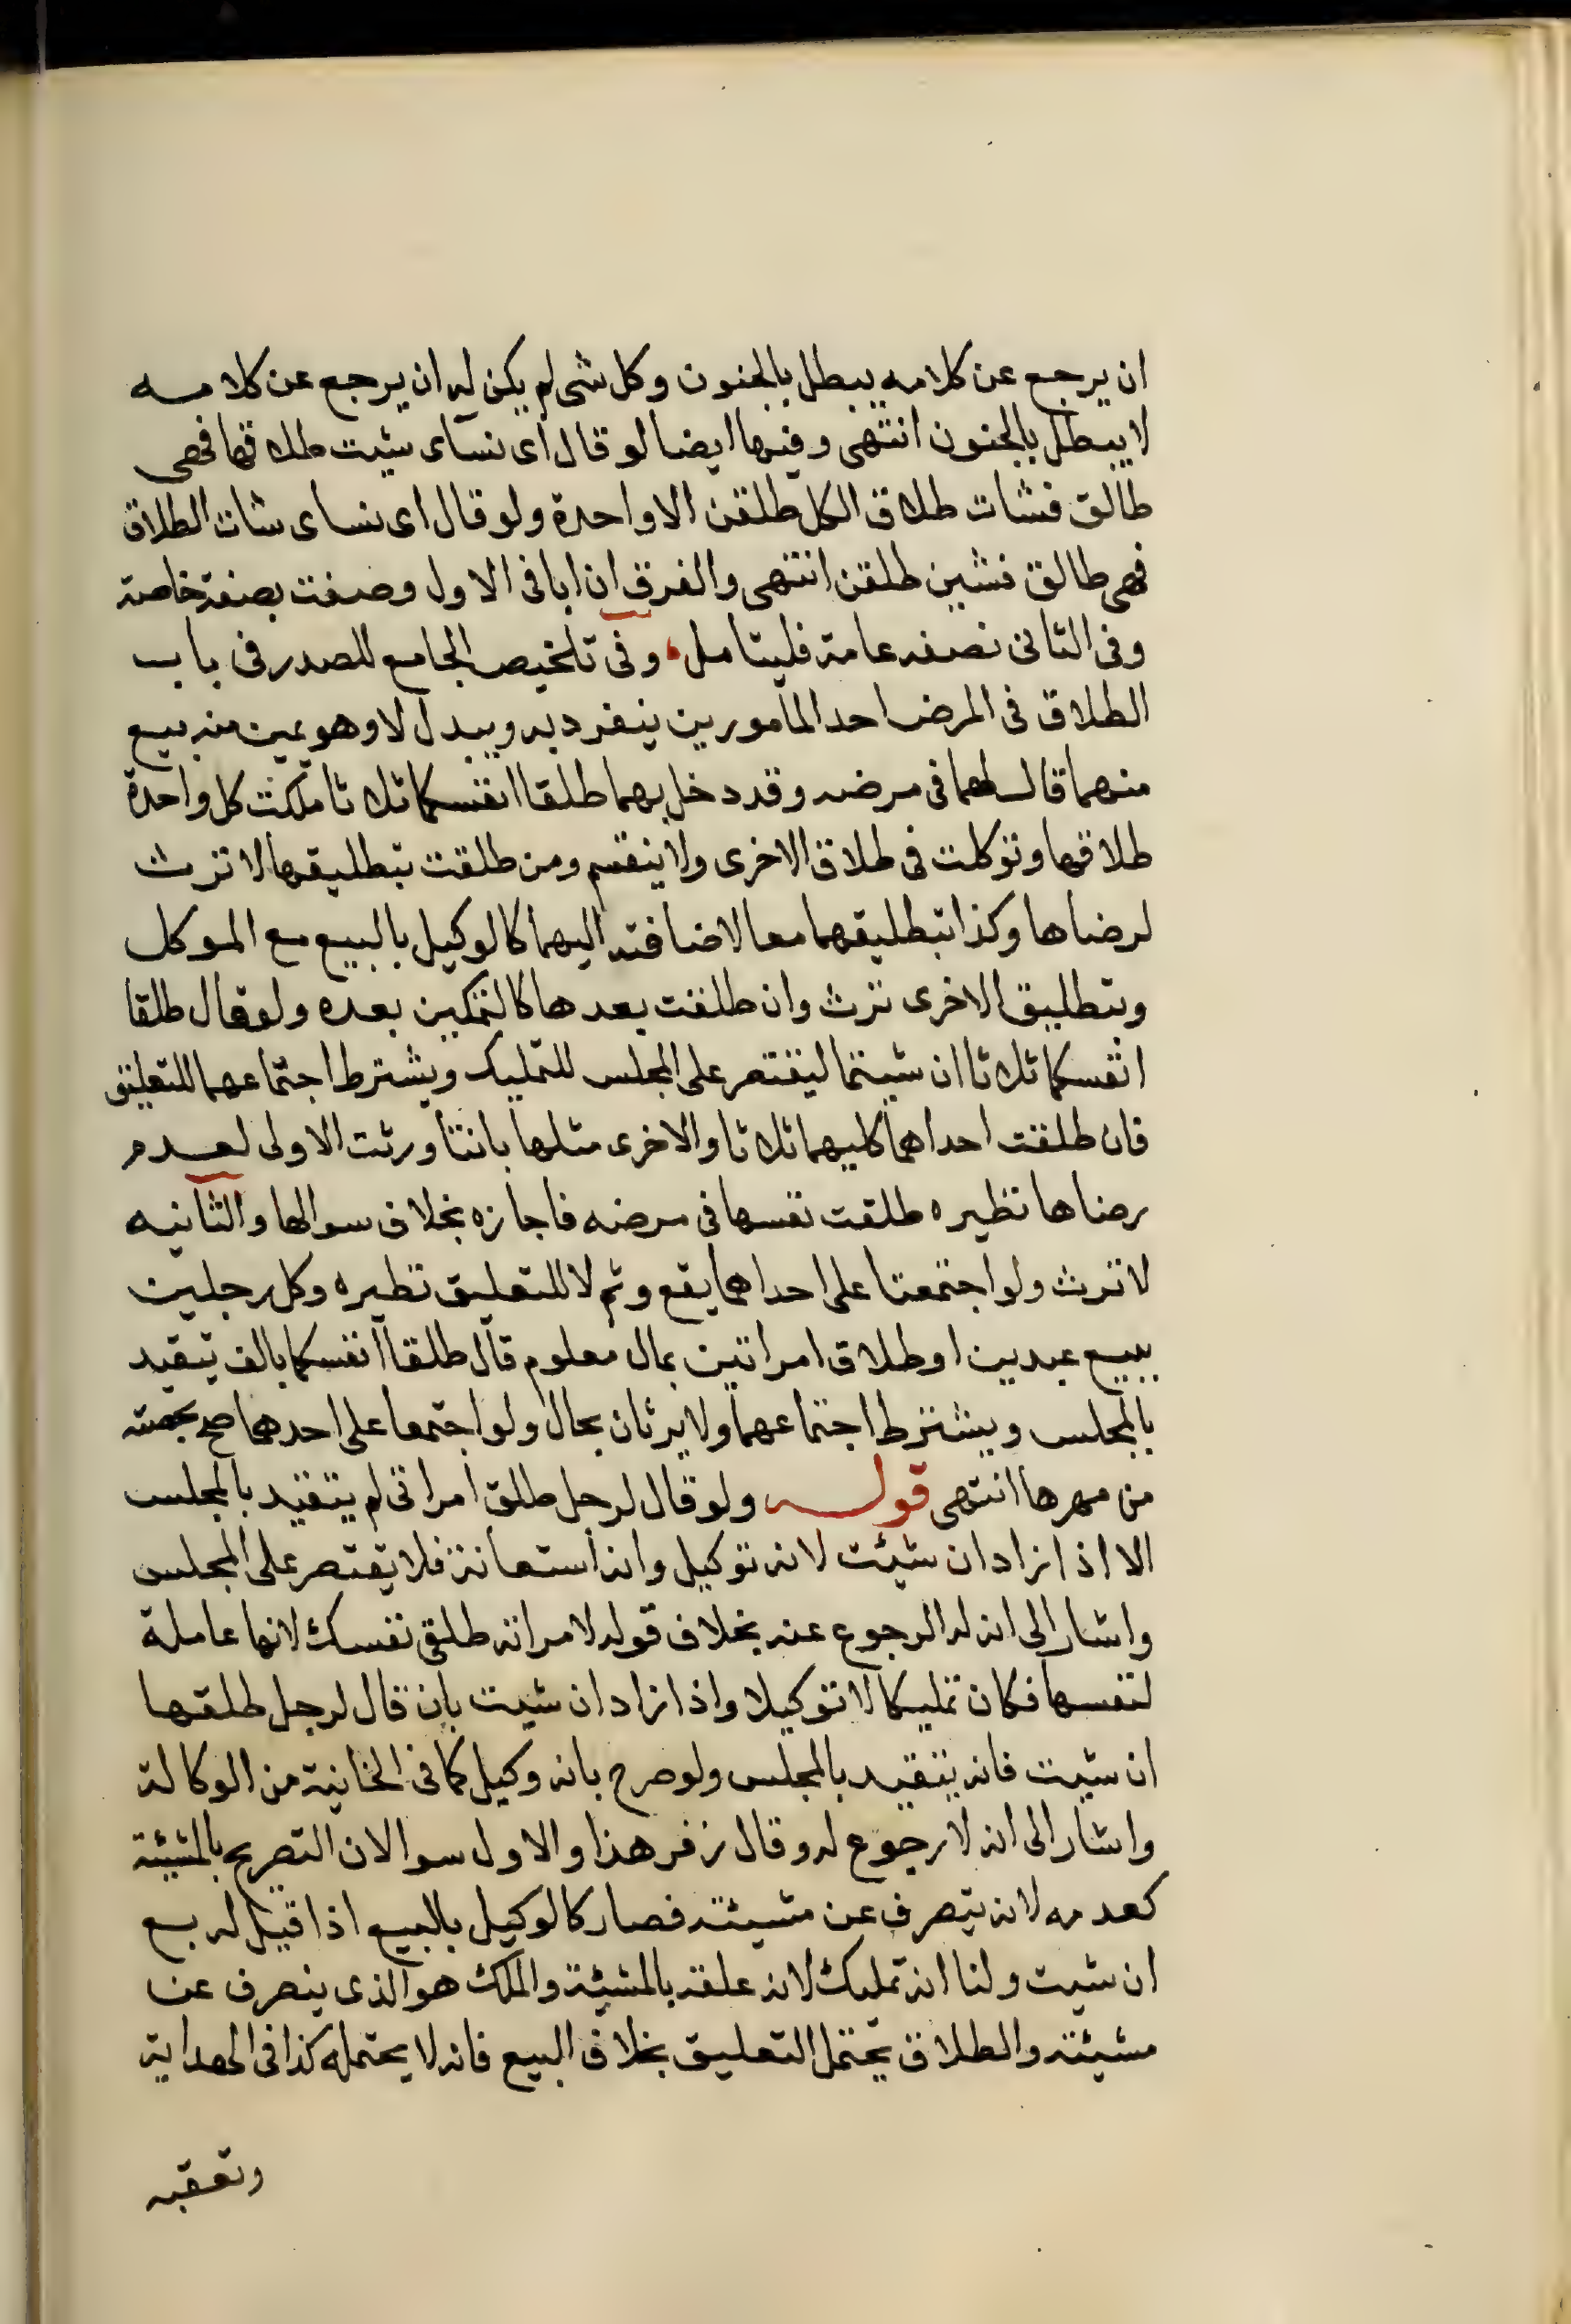 ان يرجع عن كلامه يبطل بالجنون وكل شى لم يكن له ان يرجع عن كلامه
لا يبطل بالجنون انتهى وفيها ايضا لو قال اى نساى شيت طلاقها فهى
طالق فشات طلاق الكل طلقن الا واحدة ولو قال اى نساى شات الطلاق
فهى طالق فشين طلقن انتهى والفرق ان ايا فى الاول وصفت بصفة خاصة
وفى الثانى بصفه عامة فليتامل وفى تلخيص الجامع للصدر فى باب
الطلاق فى المرض احد المامورين ينفرد به وببدل لا وهو يمين منه بيع
منهما قال لهما فى مرضه وقد دخل بهما طلقا انفسكما ثلاثا ملكت كل واحدة
طلاقها وتوكلت فى طلاق الاخرى ولا ينقسم ومن طلقت بتطليقها لا ترث
لرضاها وكذا بتطليقهما معا لاضافته اليهما كالوكيل بالبيع مع الموكل
وبتطليق الاخرى ترث وان طلقت بعدها كالتمكين بعده ولو قال طلقا
انفسكما ثلاثا ان شيتما ليقتصر على المجلس للتمليك ويشترط اجتماعهما للتعليق
فان طلقت احداهما كليهما ثلاثا والاخرى مثلها بانتا ورثت الاولى لعدم
رضاها نظيره طلقت نفسها فى مرضه فاجازه بخلاف سوالها والثانيه
لا ترث ولو اجتمعتا على احداهما يقع وثم لا للتعليق نظيره وكل رجلين
ببيع عبدين او طلاق امراتين بمال معلوم قال طلقا انفسكما بالف يتقيد
بالمجلس ويشترط اجتماعهما ولا يرثان بحال ولو اجتمعا على احدهما صح بحصته
من مهرها انتهى قوله ولو قال لرجل طلق امراتى لم يتقيد بالمجلس
الا اذا زاد ان شيئت لانه توكيل وانه استعانة فلا يقتصر على المجلس
واشار الى انه له الرجوع عنه بخلاف قوله لامراته طلقى نفسك لانها عاملة
لنفسها فكان تمليكا لا توكيلا واذا زاد ان شيت بان قال لرجل طلقها
ان شيت فانه يتقيد بالمجلس ولو صرح بانه وكيل كما فى الخانية من الوكالة
واشار الى انه لا رجوع له وقال زفر هذا والاول سوا لان التصريح بالمشيئة
كعدمه لانه يتصرف عن مشيئته فصار كالوكيل بالبيع اذا قيل له بع
ان شيت ولنا انه تمليك لانه علقه بالمشيئة والملك هو الذى يتصرف عن
مشيئته والطلاق يحتمل التعليق بخلاف البيع فانه لا يحتمله كذا فى الهداية
وتعقبه